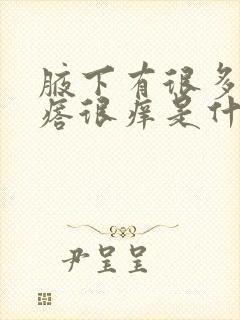 腋下有很多
痞很痒是什
尹呈呈